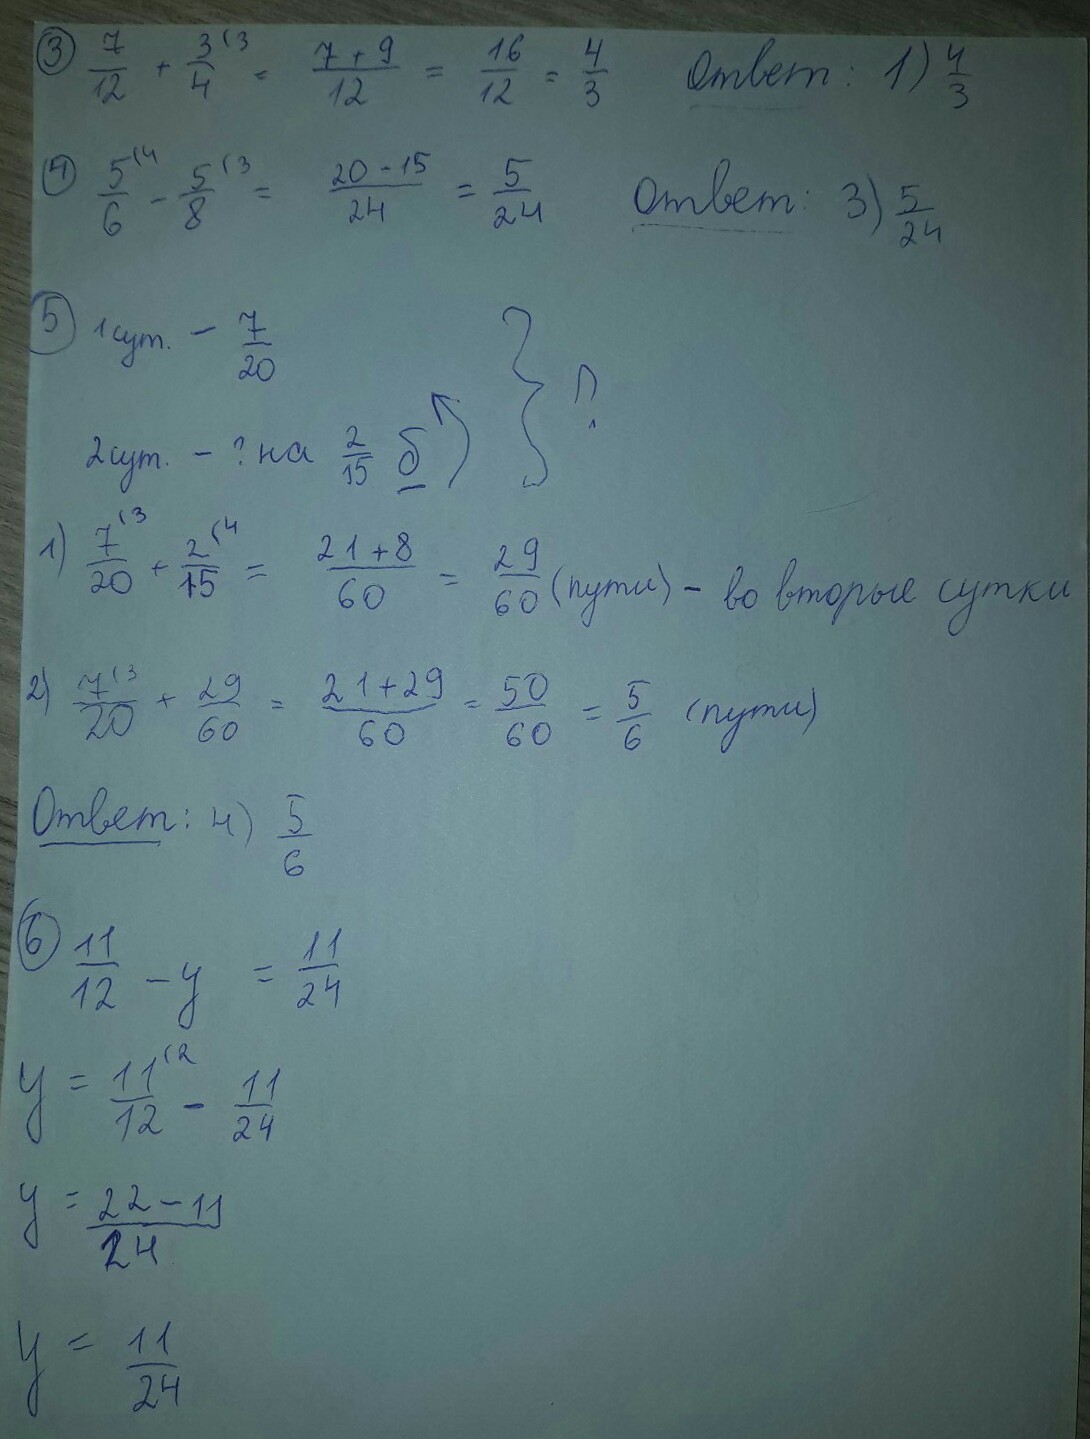 ③ 7/12 + 3/4 (3 = 7+9/12 = 16/12 = 4/3 Ответ: 1) 4/3
④ 5/6 (4 - 5/8 (3 = 20-15/24 = 5/24 Ответ: 3) 5/24
⑤ 1 сут. - 7/20
2 сут. - ? на 2/15 б } ?
1) 7/20 (3 + 2/15 (4 = 21+8/60 = 29/60 (пути) - во вторые сутки
2) 7/20 (3 + 29/60 = 21+29/60 = 50/60 = 5/6 (пути)
Ответ: 4) 5/6
⑥ 11/12 - y = 11/24
y = 11/12 (2 - 11/24
y = 22-11/24
y = 11/24